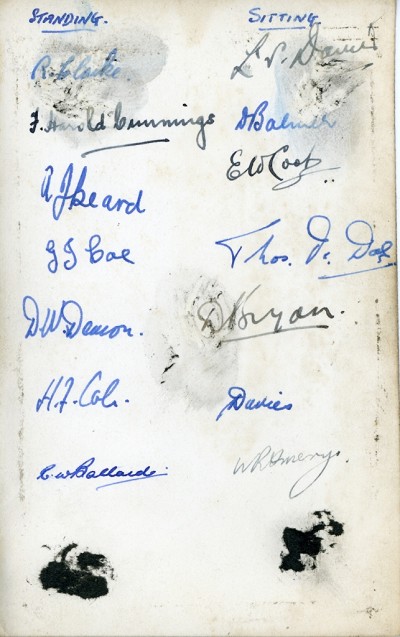 STANDING.
R. Clarke.
F. Harold Cummings
A J Beard
J J Coe
D W Demon.
H. F. Cole.
C. W. Ballard
SITTING.
L. P. Davies
D Balmer
E W Cook
Thos. De
D Bryan.
Davies
W R Amery.